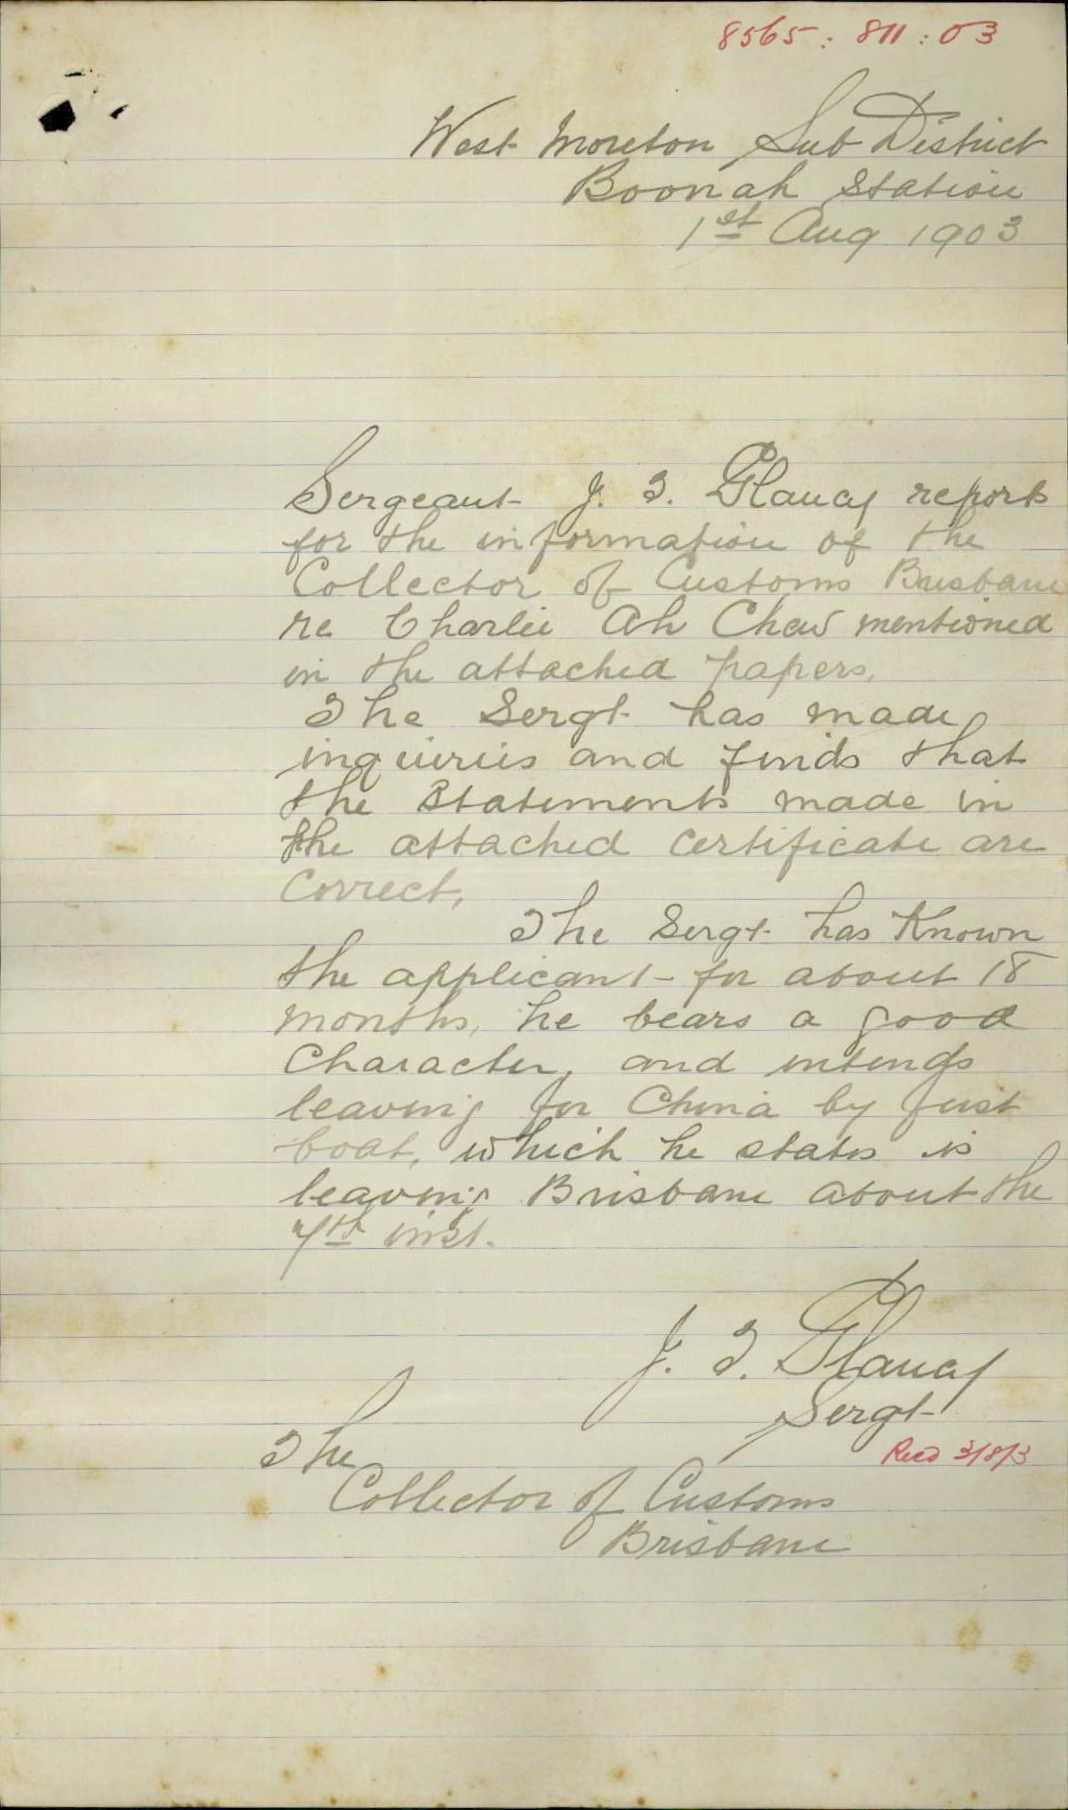 8565 : 811 : 03
West Moreton Sub District
Boonah Station
1st Aug 1903
Sergeant J. T. Glancy reports
for the information of the
Collector of Customs Brisbane
re Charlie Ah Chew mentioned
in the attached papers.
The Sergt has made
inquiries and finds that
the Statements made in
the attached certificate are
correct,
The Sergt has Known
the applicant for about 18
months, he bears a good
Character, and intends
leaving for China by first
boat, which he states is
leaving Brisbane about the
7th inst.
J. T. Glancy
Sergt
Recd 3/8/3
The
Collector of Customs
Brisbane